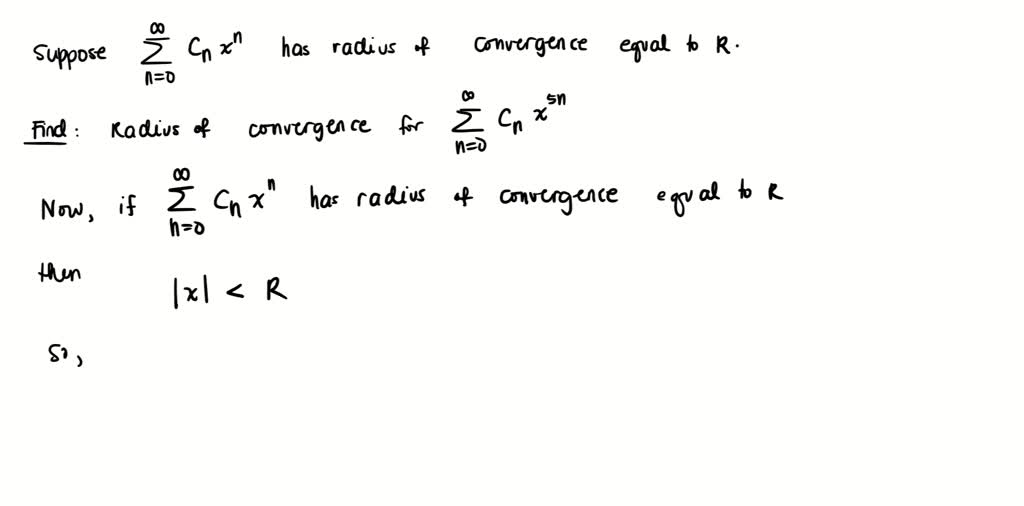 Suppose ∞∑n=0 Cn xⁿ has radius of convergence equal to R.
Find: Radius of convergence for ∞∑n=0 Cn x⁵ⁿ
Now, if ∞∑n=0 Cn xⁿ has radius of convergence equal to R
then |x| < R
So,